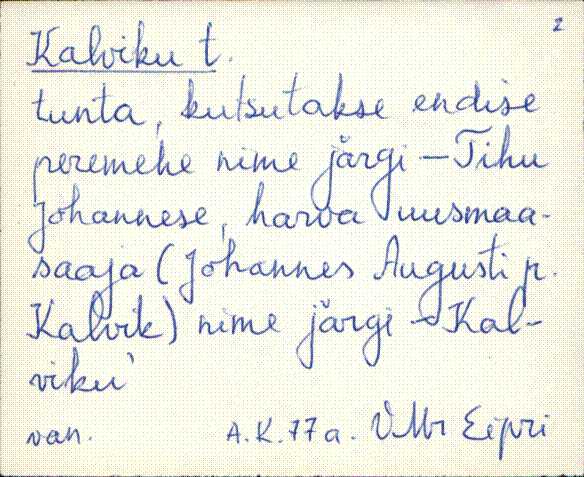 2
Kalviku t.
tunta, kutsutakse endise
peremehe nime järgi – Tihu
Johannese, harva uusmaa-
saaja (Johannes Augusti p.
Kalvik) nime järgi – Kal-
viku'
van. A.K. 77 a. VMr Eipri